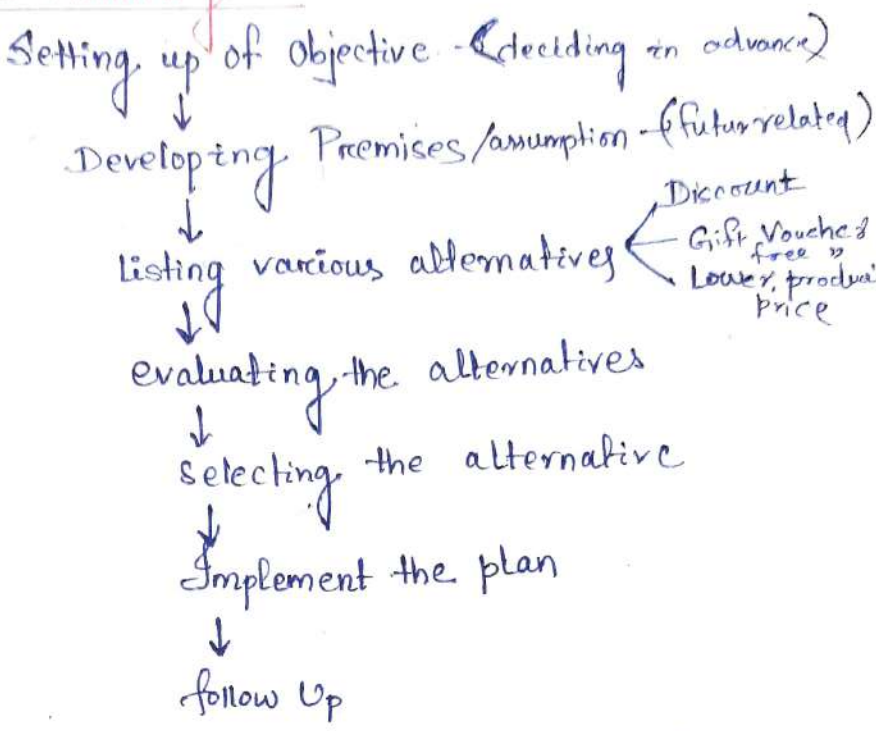 Setting up of objective - (deciding in advance)
↓
Developing Premises/assumption - (futur related)
↓
Listing various alternatives
Discount
Gift Voucher
free "
Lower produc
price
↓
evaluating the alternatives
↓
selecting the alternative
↓
Implement the plan
↓
follow Up